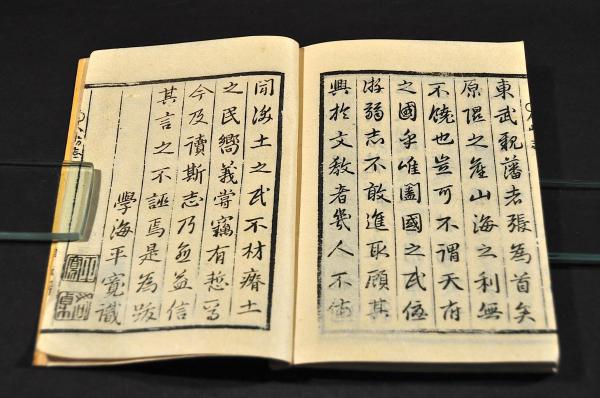 東武親藩老張為首矣
原隰之產山海之利無
不饒也豈可不謂天府
之國乎唯闔國之民
弱志不敢進取顧其
興於文教者幾人不佞
聞沃土之民不材瘠土
之民嚮義嘗竊有慙焉
今及讀斯志乃愈益信
其言之不誣焉是為跋
學海平寬識